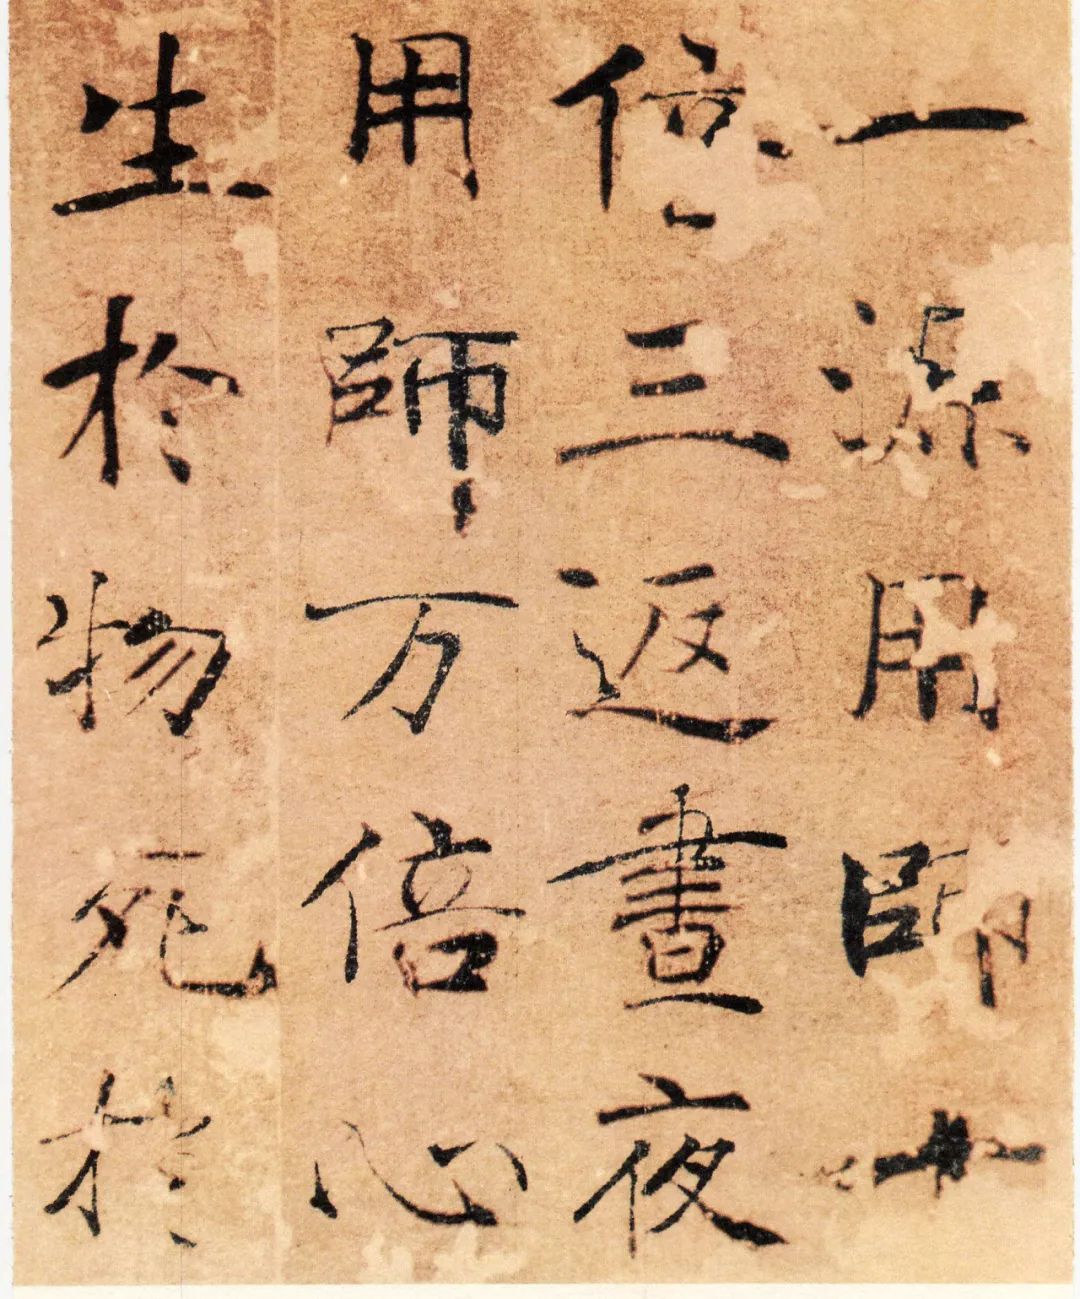 一源用師十
倍三返晝夜
用師万倍心
生於物死於